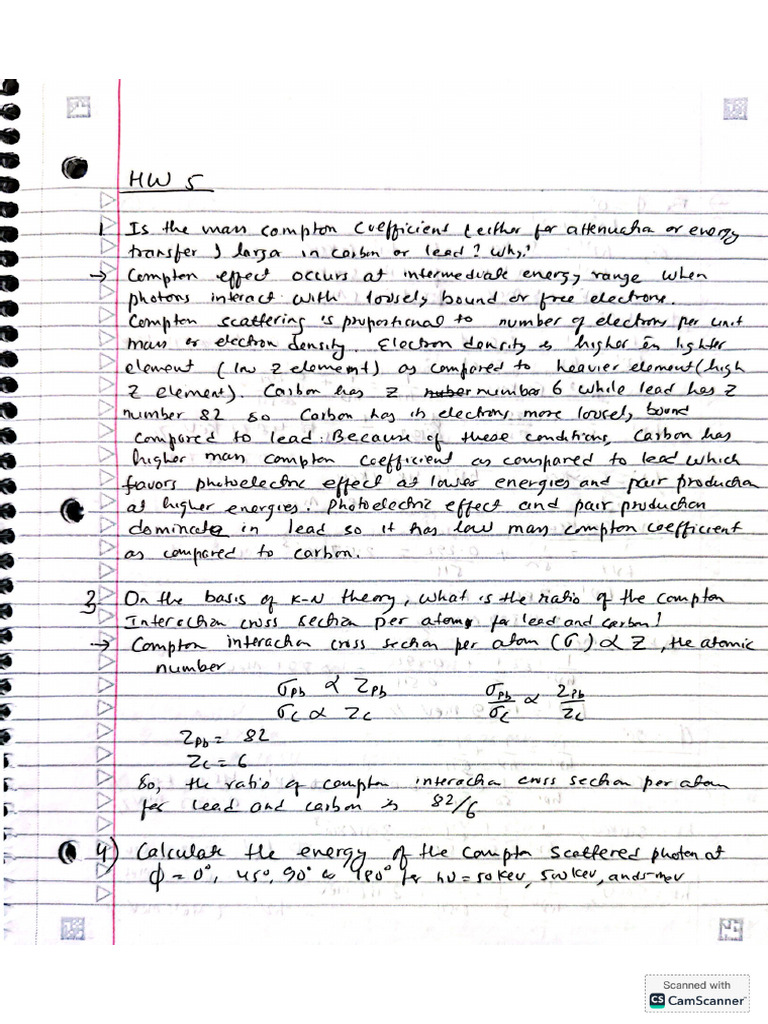 HW 5
1 Is the mass compton coefficient (either for attenuation or energy
transfer) larger in carbon or lead? Why?
→ Compton effect occurs at intermediate energy range when
photons interact with loosely bound or free electrons.
Compton scattering is proportional to number of electrons per unit
mass or electron density. Electron density is higher in lighter
element (low Z element) as compared to heavier element (high
Z element). Carbon has Z number 6 while lead has Z
number 82 so Carbon has its electrons more loosely bound
compared to lead. Because of these conditions, Carbon has
higher mass compton coefficient as compared to lead which
favors photoelectric effect at lower energies and pair production
at higher energies. Photoelectric effect and pair production
dominate in lead so it has low mass compton coefficient
as compared to carbon.
3 On the basis of K-N theory, what is the ratio of the compton
Interaction cross section per atom for lead and carbon?
→ Compton interaction cross section per atom (σ) ∝ Z, the atomic
number
σPb ∝ ZPb σPb/σC ∝ ZPb/ZC
σC ∝ ZC
ZPb = 82
ZC = 6
So, the ratio of compton interaction cross section per atom
for lead and carbon is 82/6
4) Calculate the energy of the Compton Scattered photon at
ϕ = 0°, 45°, 90° & 180° for hν = 50 keV, 500 keV, and 5 mev
Scanned with
CS CamScanner